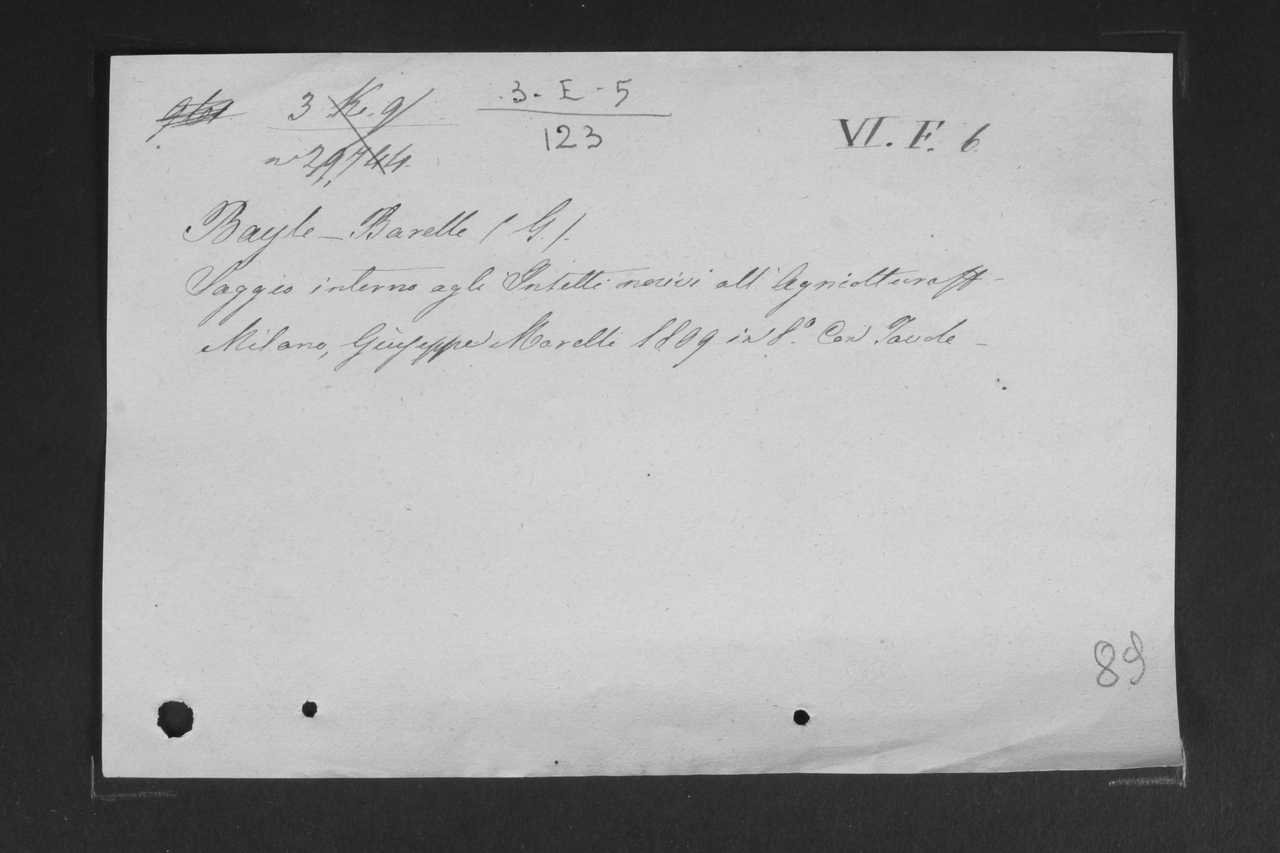 3 K. g/
n° 29,744
3-E-5
123
VI. F. 6
Bayle-Barelle (G.)
Saggio intorno agli Insetti nocivi all'Agricoltura
Milano, Giuseppe Marelli 1809 in 8.° Con Tavole -
89